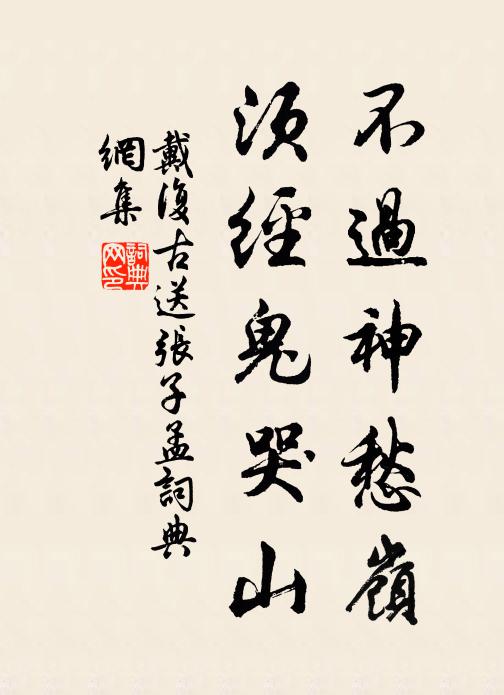 不過神愁嶺
須經鬼哭山
戴復古送張子孟詞典
網集
詞典網印